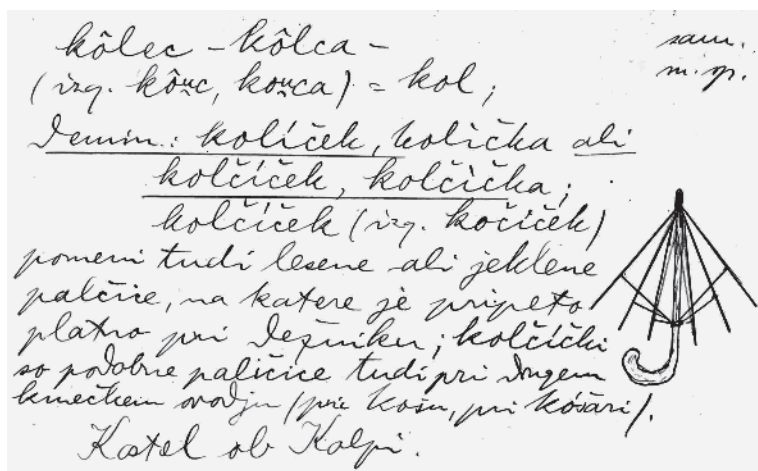 kôlec – kôlca – sam.
(izg. kôu̯c, kou̯ca) = kol; m. sp.
Demin.: kolíček, kolíčka ali
kolčíček, kolčíčka;
kolčíček (izg. kočíček)
pomeni tudi lesene ali jeklene
palčice, na katere je pripeto
platno pri dežniku; kolčíčki
so podobne paličice tudi pri drugem
kmečkem orodju (pri košu, pri kóšari).
Kostel ob Kolpi.